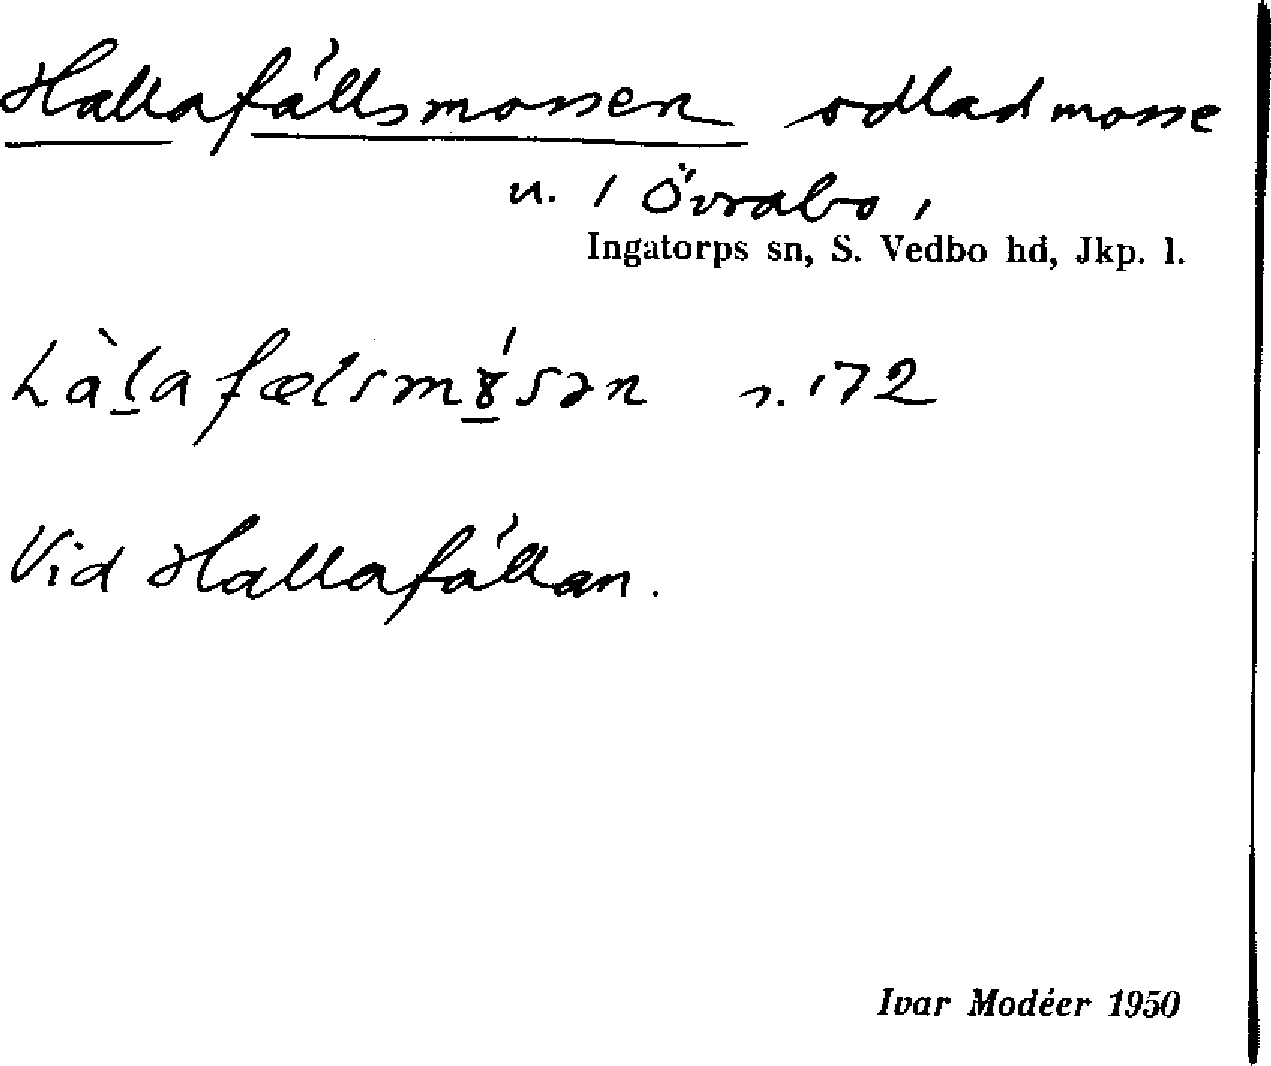 Hallafállsmossen odlad mosse
u. 1 Övrabo 1
Ingatorps sn, S. Vedbo hd, Jkp. l.
n. 172
Vid Hallafállan.
Ivar Modéer 1950